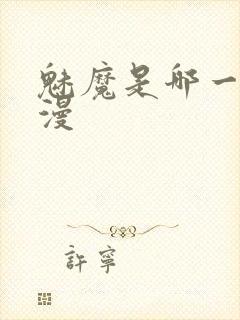 魅魔是哪一
漫
許寧